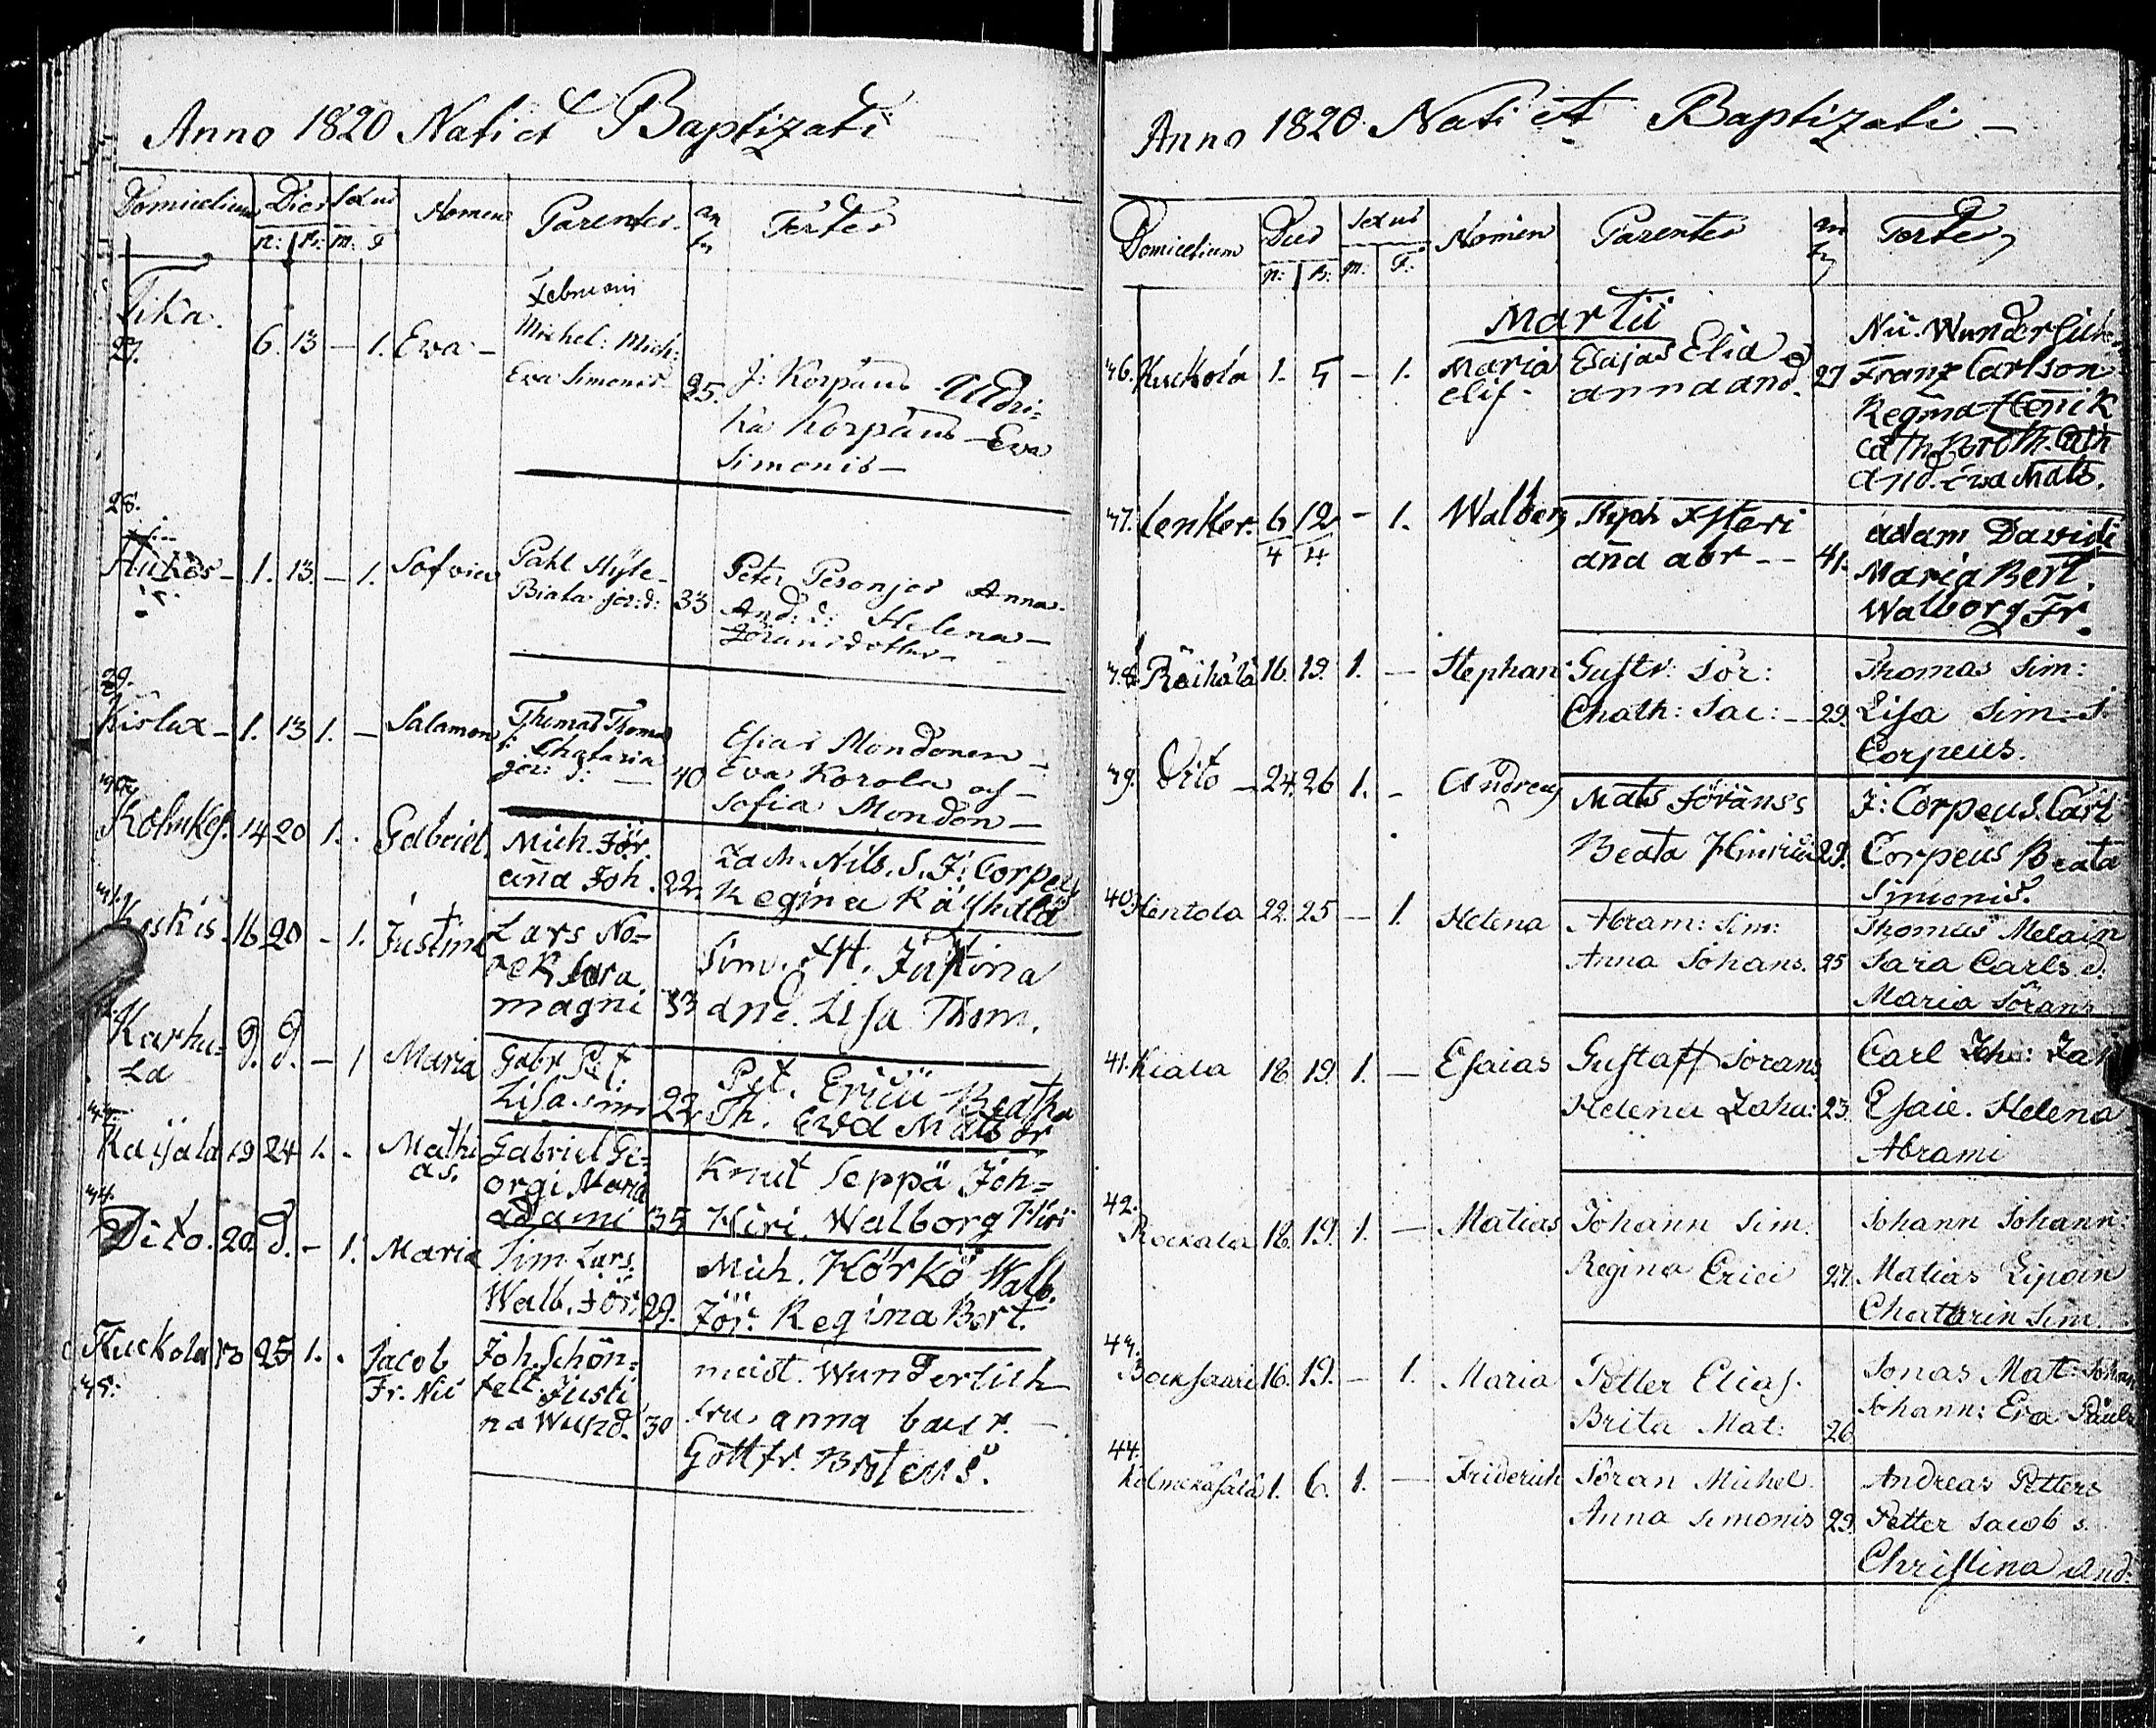 Anno 1820 Nati et Baptizati
Domicelium Dies Sexus Nomen Parentes an Testes
n: B: m: F
Februarii
Tika.
27. 6. 13 – 1. Ewa –
Michel: Mich:
Ewa Simonis 25.
J: Korpäus Uldri=
ka Korpäus – Eva
Simonis –
28.
1. 13. – 1. Sofvia
Pahl
Biata jör:d: 33
Peter Pesonjos Anna
And: d: Helena –
Göransdotter –
29.
Kislax – 1. 13 1. – Salamon
Thomas Thomas
Chataria
jör: d: — 40
Esias Mondonen –
Eva Korola och –
Sofia Mondon –
30.
14 20 1. . Gabriel.
Mich. Jör.
aña Joh. 22.
Zach. Nils. S. J: Corpeus
Regina
31.
16. 20 – 1. Justina
Lars No=
magni 33
Sim. Justina
and. Lisa Thom.
Karhu=
la 9. 9. – 1 Maria
Gabr. Pet:
Lisa Sim 22
Pet. Ericii Beatha
Th. Ewa Mats dr
Kaijala 19 24 1. – Mathi
as.
Gabriel Ge=
orgi Maria
adami 35
Knut Seppä Joh=
Hiri. Walborg Hiri
34.
Dito. 20. d. – 1. Maria
Sim Lars.
Walb. Jör 29.
Mich. Körkö Walb.
Jör: Regina Bert.
Kuckola 13 25 1. . Jacob
Fr. Nii
35.
Joh. Schön=
felt Justi
na Wund. 30
meist. Wunderlich
fru anna baur. –
Gottfr. Broteus.
Anno 1820 Nati et Baptizati –
Domicelium Dies Sexus Nomen Parentes an Testes
n: B: m: F:
Martii
36. Kuckola 1. 5 – 1. Maria
Elis.
Esajas Elia
anna and. 27
Nii. Wunderlich
Franz Carlson
Regina Henik
Cath. Broth. Cath
and. Ewa Mats.
37. Lenker. 6 12 – 1. Walborg
4 4
aña abr – – 41.
adam Davidi
Maria Bert.
Walborg Fr.
38. Räihälä 16. 19. 1. — Stephan
Gustv: Jör:
Chath: Jac: – 29.
Thomas Sim:
Lisa Sim: J.
Corpeus.
39. Dito – 24. 26 1. – Andreas
Mats Jöranss
Beata Hinrici 29.
J: Corpeus. Carl
Corpeus Beata
Simonis.
40. Hentola 22. 25 — 1. Helena
Abram: Sim:
Anna Johans. 25
Thomas Melain
Sara Carls d.
Maria Jörans
41. Kiala 18. 19. 1. — Esaias
Gustaff Jorans
Helena Joha: 23.
Carl Joha:
Esaie. Helena
Abrami
42.
Rockala 18. 19. 1. — Matias
Johann Sim.
Regina Erici 27.
Johann Johann:
Matias Lipain
Chatharin Sim
43.
Bocksaari 16. 19. — 1. Maria
Petter Elias.
Brita Mat: 26
Jonas Mat: Johan
Johann: Eva Pauls
44.
Kolmikäsala 1. 6. 1. — Friderich
Jöran Michel.
Anna Simonis 29.
Andreas Petters
Petter Jacob s.
Christina And: